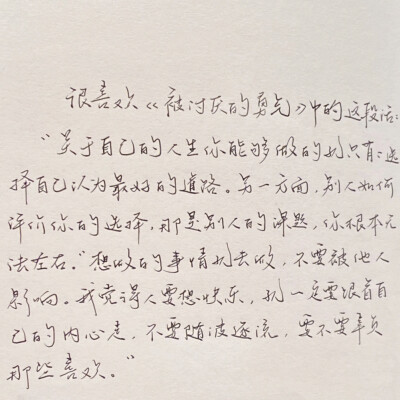 很喜欢《被讨厌的勇气》中的这段话:
“关于自己的人生你能够做的就只有:选
择自己认为最好的道路。另一方面,别人如何
评价你的选择,那是别人的课题,你根本无
法左右。”想做的事情就去做,不要被他人
影响。我觉得人要想快乐,就一定要跟着自
己的内心走,不要随波逐流,要不要辜负
那些喜欢。”